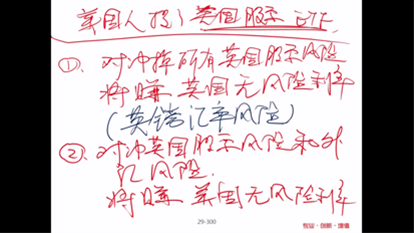 美国人投资英国股票 ETF.
①. 对冲掉所有英国股票风险
将赚 英国无风险利率
(英镑汇率风险)
②. 对冲英国股票风险和外
汇风险.
将赚 美国无风险利率
29-300
智慧·创新·增值